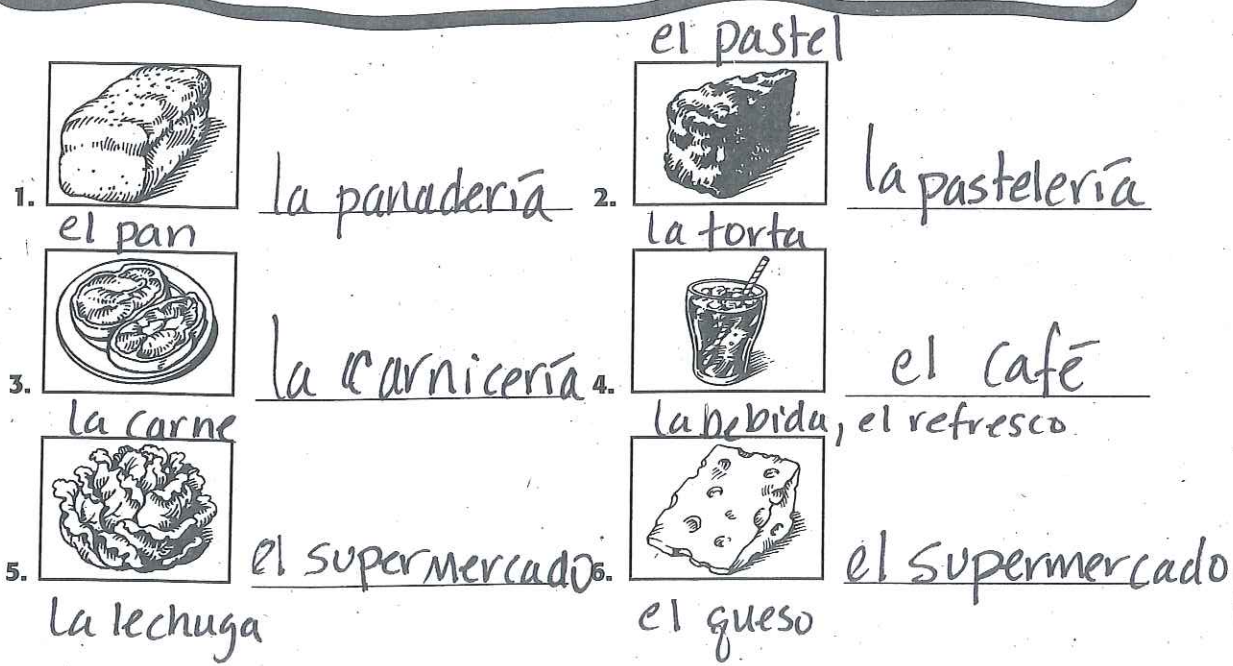 el pastel
1. la panadería
el pan
2. la pastelería
la torta
3. la carnicería
la carne
4. el café
la bebida, el refresco
5. el supermercado
la lechuga
6. el supermercado
el queso